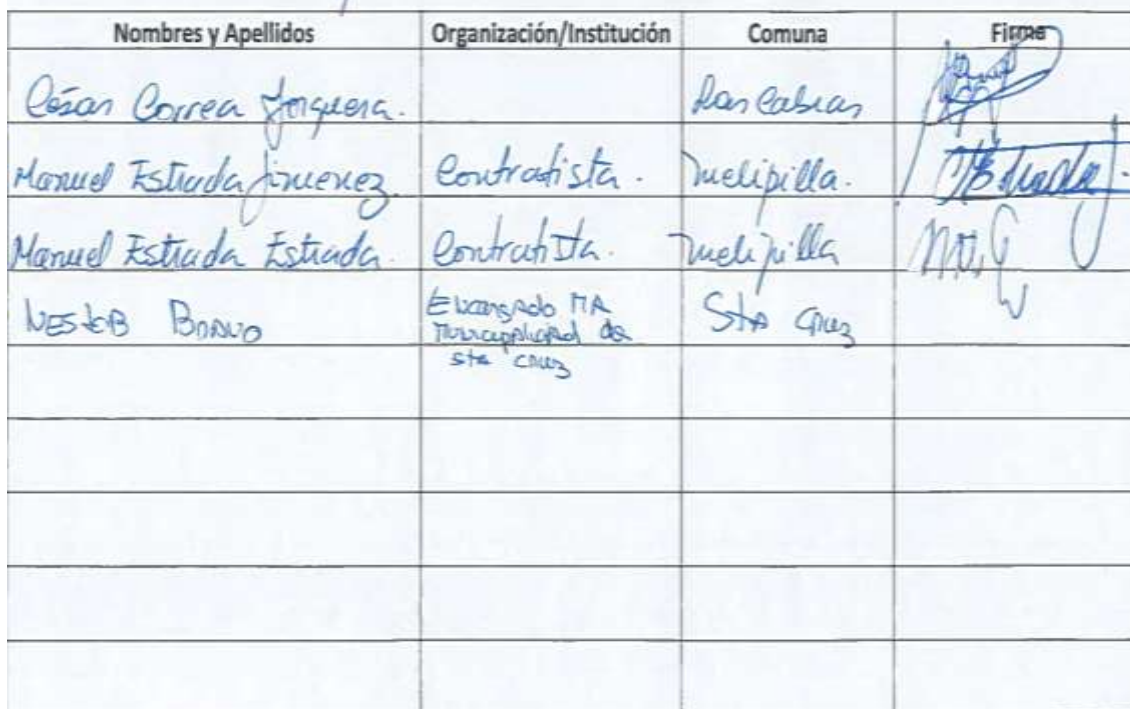 Nombres y Apellidos Organización/Institución Comuna Firma
César Correa Jorquera. Las Cabras
Manuel Estrada Jimenez. Contratista. Melipilla.
Manuel Estrada Estrada. Contratista. Melipilla
NESTOR BRAVO Encargado MA Sta Cruz
Municipalidad de
sta cruz